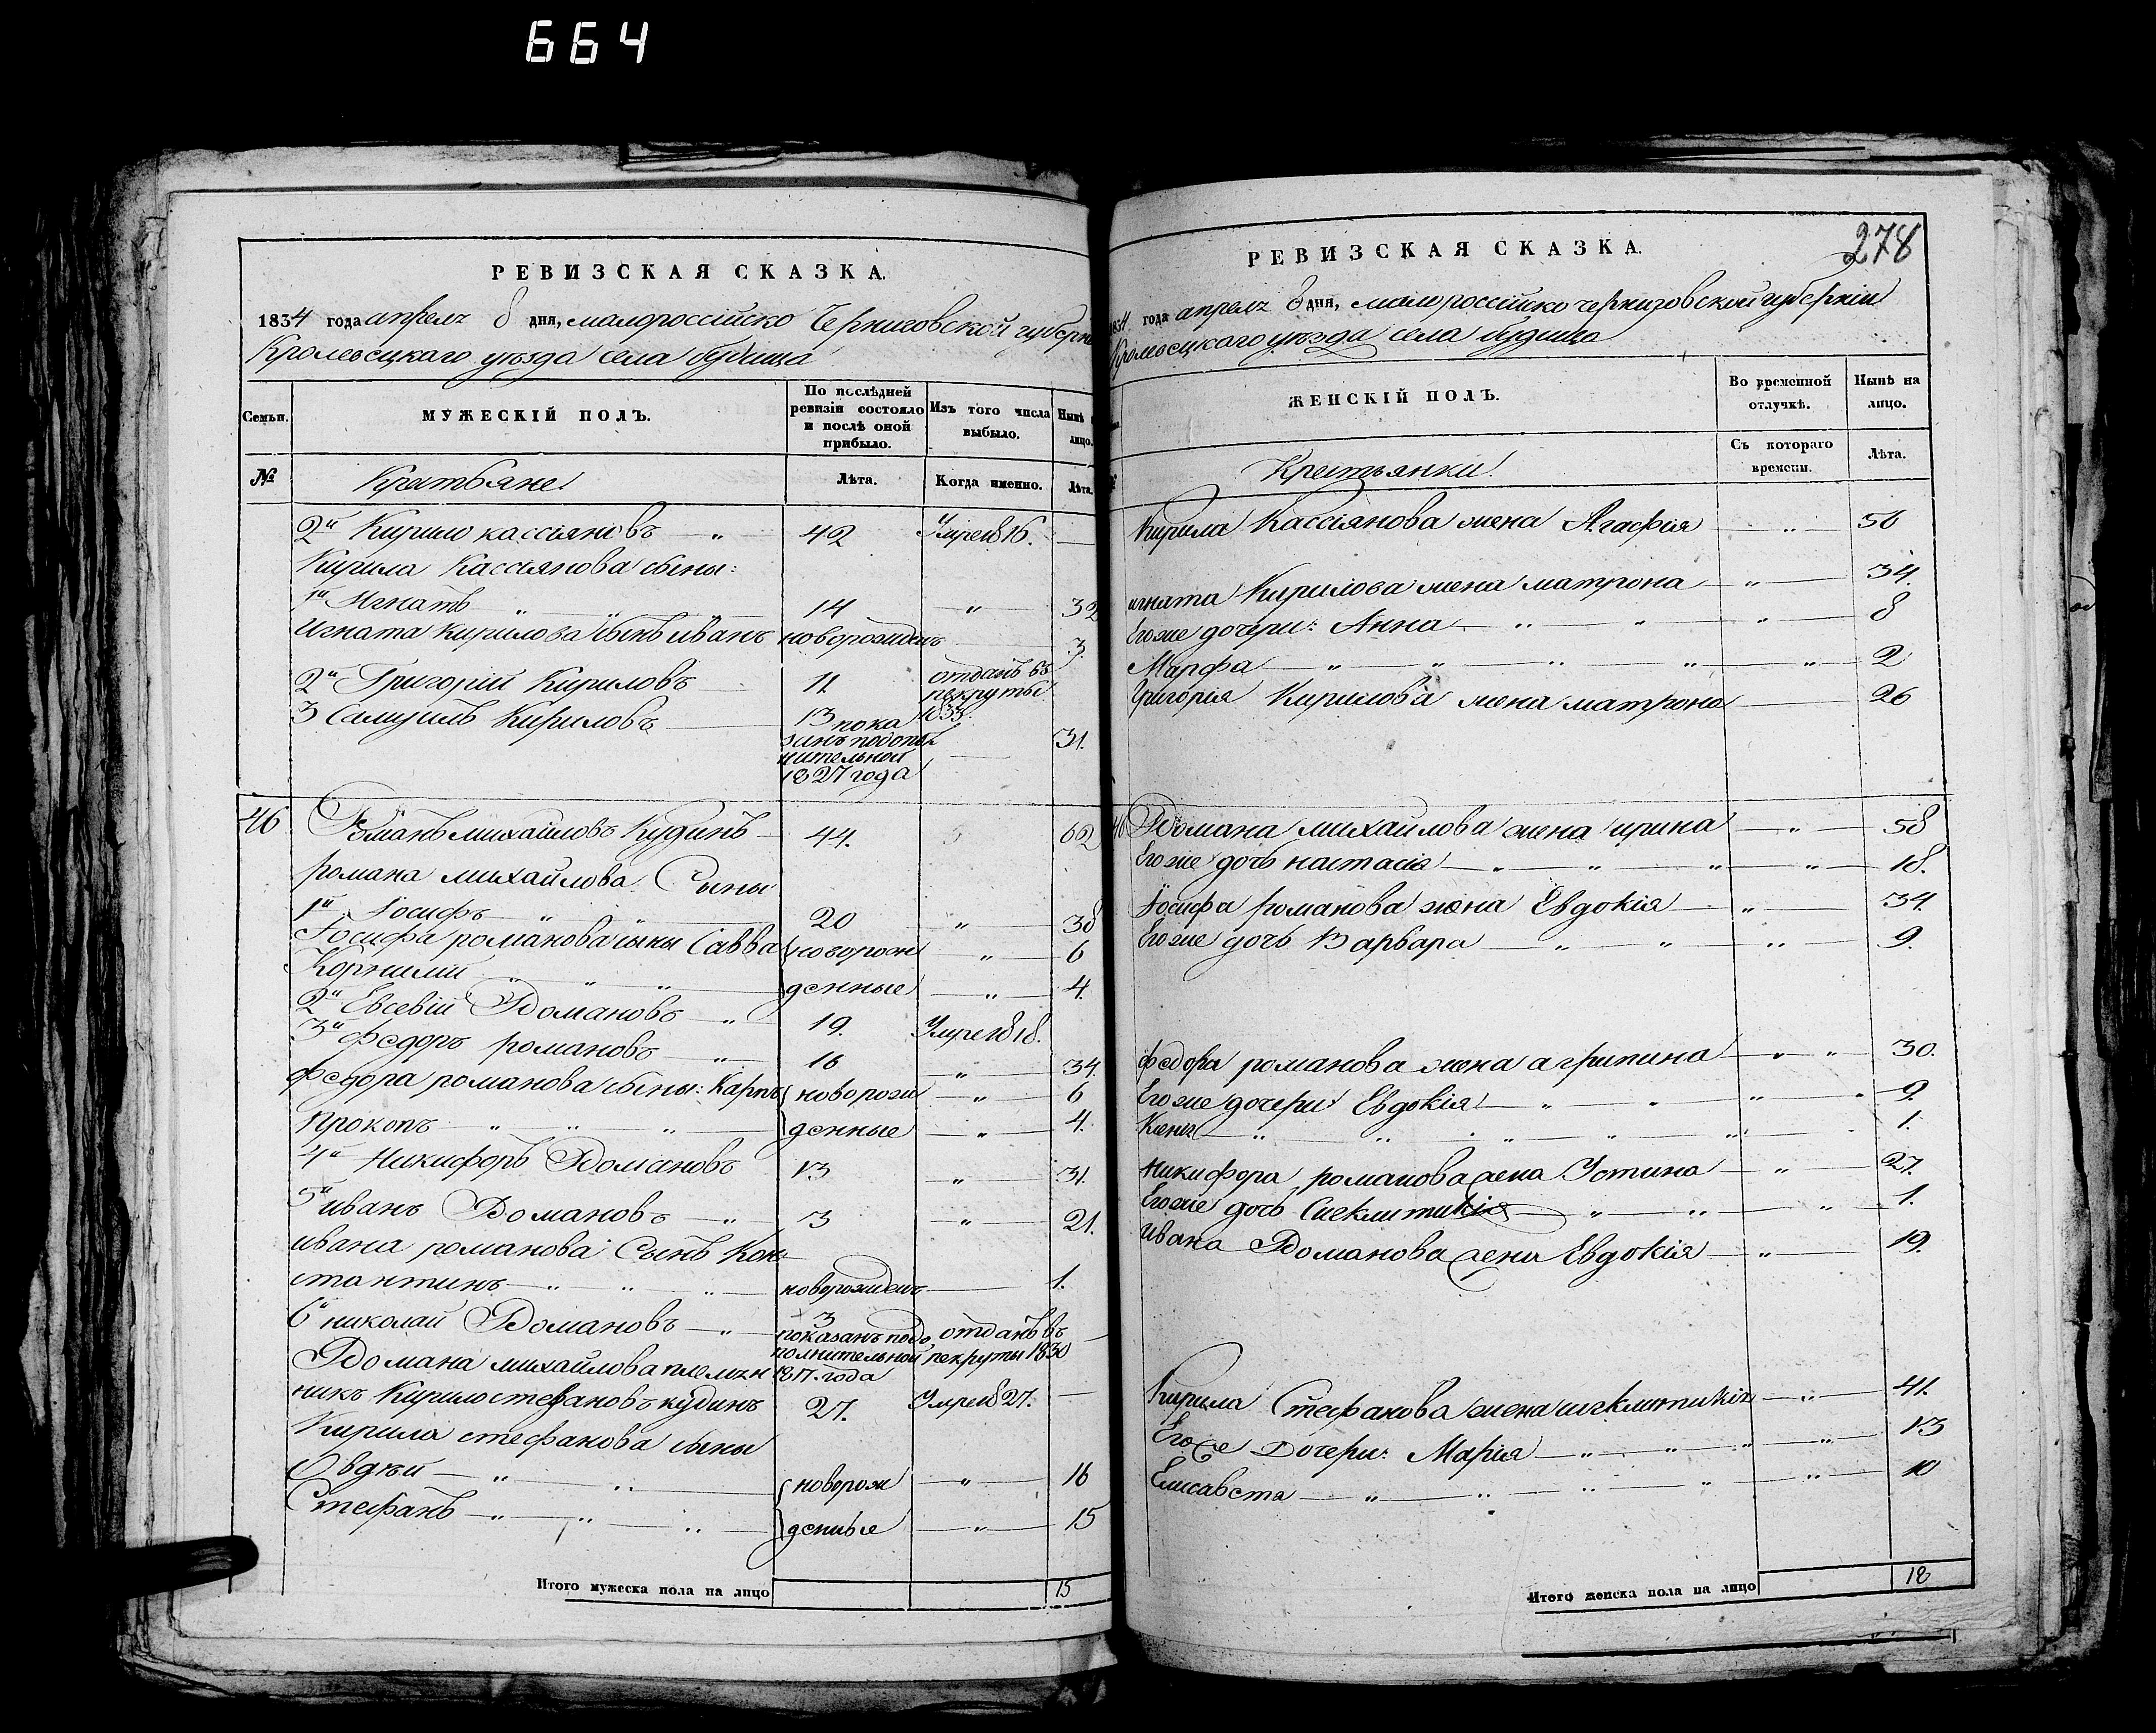 664
РЕВИЗСКАЯ СКАЗКА.
1834 года апреля 8 дня, малороссійско Черниговской губерн
Кролевецкаго уезда села будища
Семьи.
МУЖЕСКІЙ ПОЛЪ.
По послѣдней ревизіи состояло и послѣ оной прибыло.
Изъ того числа выбыло.
Нынѣ лицо.
№
Крестьяне
Лѣта.
Когда именно.
Лѣта.
2й Кирило кассіяновъ 42 Умре 816.
Кирила Кассіянова сыны:
1й Игнатъ 14 32
Игната Кирилова сынъ иванъ новорожденъ 3.
2й Григорій Кириловъ 11 отданъ въ рекруты 1833.
3 Самуилъ Кириловъ 13 показанъ по дополнительной 1827 года 31.
46 Романъ михайловъ Кудинъ 44. 62
романа михайлова Сыны
1й Іосифъ 20 38
Іосифа романова сыны Савва новорож 6
Корнилий денные 4.
2й Евсевій Романовъ 19. Умре 818.
3й федоръ романовъ 16 34.
федора романова сыны: Карпъ новорож 6
Прокопъ денные 4.
4й Никифоръ Романовъ 13 31.
5й иванъ Романовъ 3 21.
ивана романова Сынъ Кон
стантинъ новорожденъ 1.
6й николай Романовъ 3 показанъ по дополнительной 1817. года отданъ въ рекруты 1830
Романа михайлова племян
никъ Кирило стефановъ кудинъ 27. Умре 827.
Кирила стефанова сыны
Овдѣй новорож 16
Стефанъ денные 15
Итого мужеска пола на лицо 15
278
РЕВИЗСКАЯ СКАЗКА.
1834 года апреля 8 дня, малороссійско черниговской губерніи
Кролевецкаго уезда села будища
ЖЕНСКІЙ ПОЛЪ.
Во временной отлучкѣ.
Нынѣ на лицо.
Крестьянки
Съ котораго времени.
Лѣта.
Кирила Кассіянова жена Агафія 56
игната Кирилова жена матрона 34.
Его же дочери: Анна 8
Марфа 2
Григорія Кирилова жена матрона 26
46 Романа михайлова жена ирина 58
Его же дочь настасія 18.
Іосифа романова жена Евдокія 34.
Его же дочь Варвара 9.
федора романова жена агрипина 30.
Его же дочери Евдокія 9.
1.
Никифора романова жена Устина 27.
Его же дочь Синклитикія 1.
Ивана Романова жена Евдокія 19.
Кирила Стефанова жена 41.
Его же Дочери: Марія 13
Елисавета 10
Итого женска пола на лицо 18